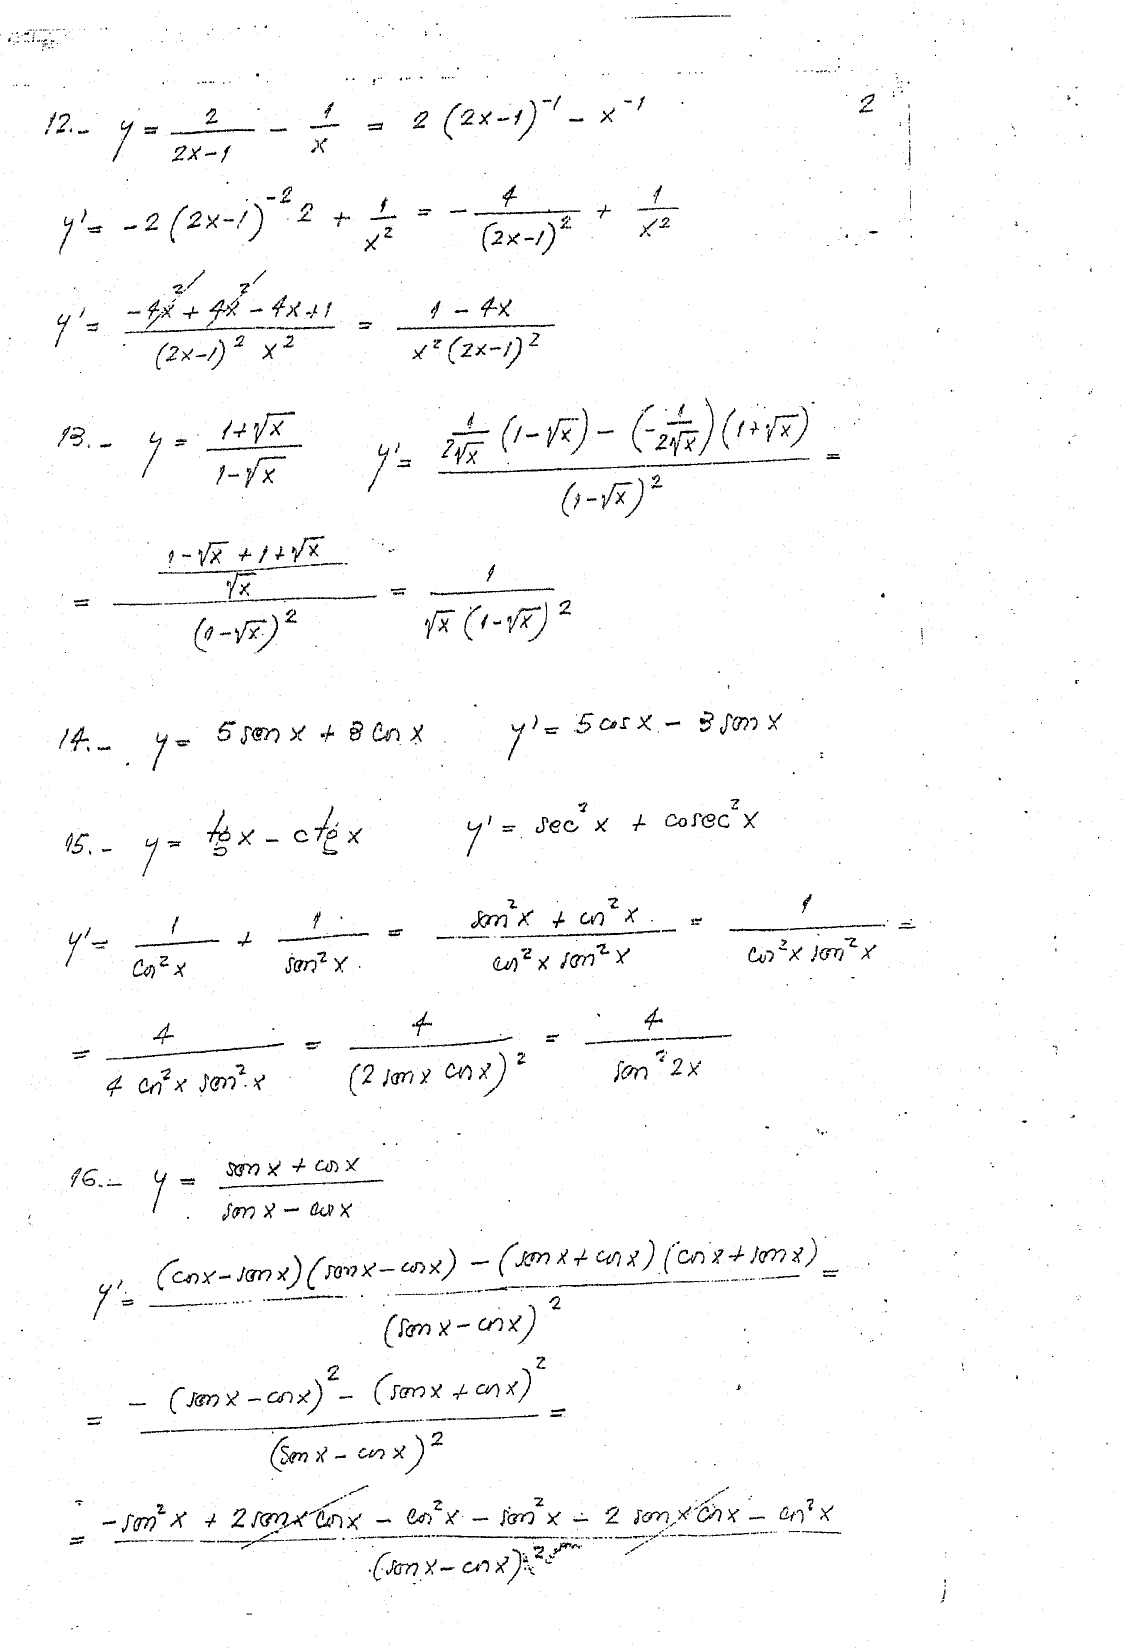 2
12.- y = 2/(2x-1) - 1/x = 2(2x-1)^-1 - x^-1
y' = -2(2x-1)^-2 2 + 1/x^2 = - 4/(2x-1)^2 + 1/x^2
y' = (-4x^2 + 4x^2 - 4x + 1)/((2x-1)^2 x^2) = (1 - 4x)/(x^2(2x-1)^2)
13.- y = (1+√x)/(1-√x) y' = (1/(2√x) (1-√x) - (-1/(2√x))(1+√x))/(1-√x)^2 =
= ((1-√x + 1+√x)/√x)/(1-√x)^2 = 1/(√x (1-√x)^2)
14.- y = 5 sen x + 3 cos x y' = 5 cos x - 3 sen x
15.- y = tg x - ctg x y' = sec^2 x + cosec^2 x
y' = 1/cos^2 x + 1/sen^2 x = (sen^2 x + cos^2 x)/(cos^2 x sen^2 x) = 1/(cos^2 x sen^2 x) =
= 4/(4 cos^2 x sen^2 x) = 4/(2 sen x cos x)^2 = 4/sen^2 2x
16.- y = (sen x + cos x)/(sen x - cos x)
y' = ((cos x - sen x)(sen x - cos x) - (sen x + cos x)(cos x + sen x))/(sen x - cos x)^2 =
= (-(sen x - cos x)^2 - (sen x + cos x)^2)/(sen x - cos x)^2 =
= (-sen^2 x + 2 sen x cos x - cos^2 x - sen^2 x - 2 sen x cos x - cos^2 x)/(sen x - cos x)^2